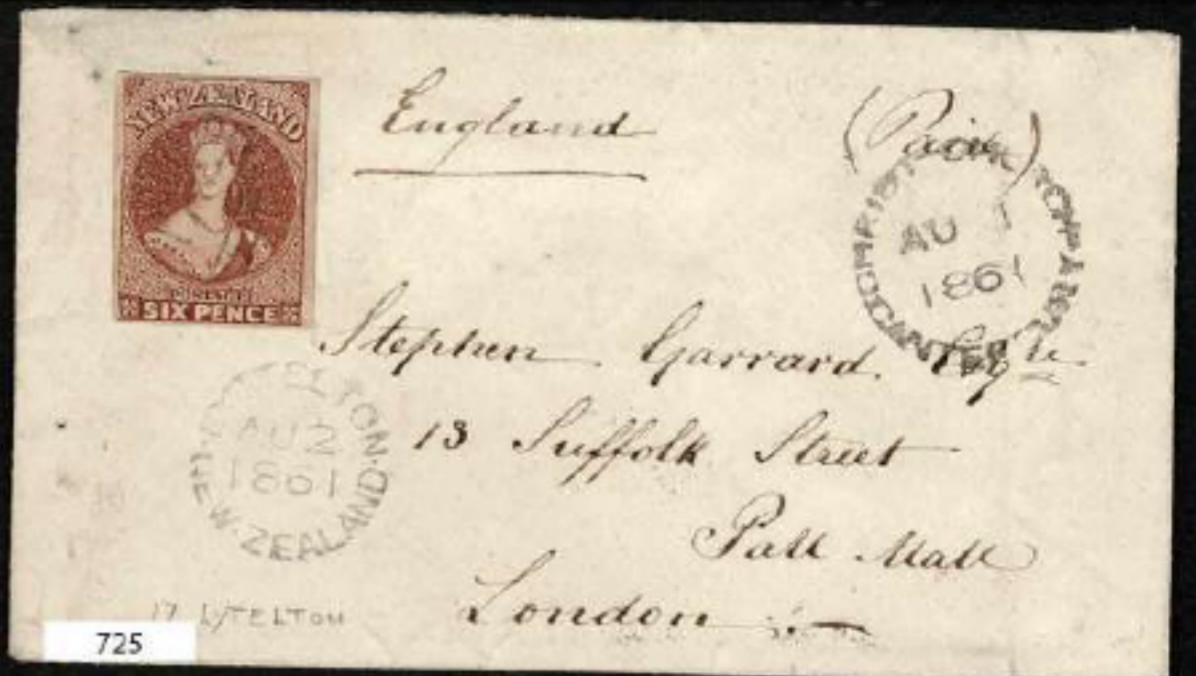 NEW ZEALAND
POSTAGE
SIX PENCE
England
(Paid)
CHRISTCHURCH
AU 1
1861
CANTERBURY
Stephen Garrard. Esqre
13 Suffolk Street
Pall Mall
London
LYTTELTON
AU 2
1861
NEW ZEALAND
17 LYTELTON
725